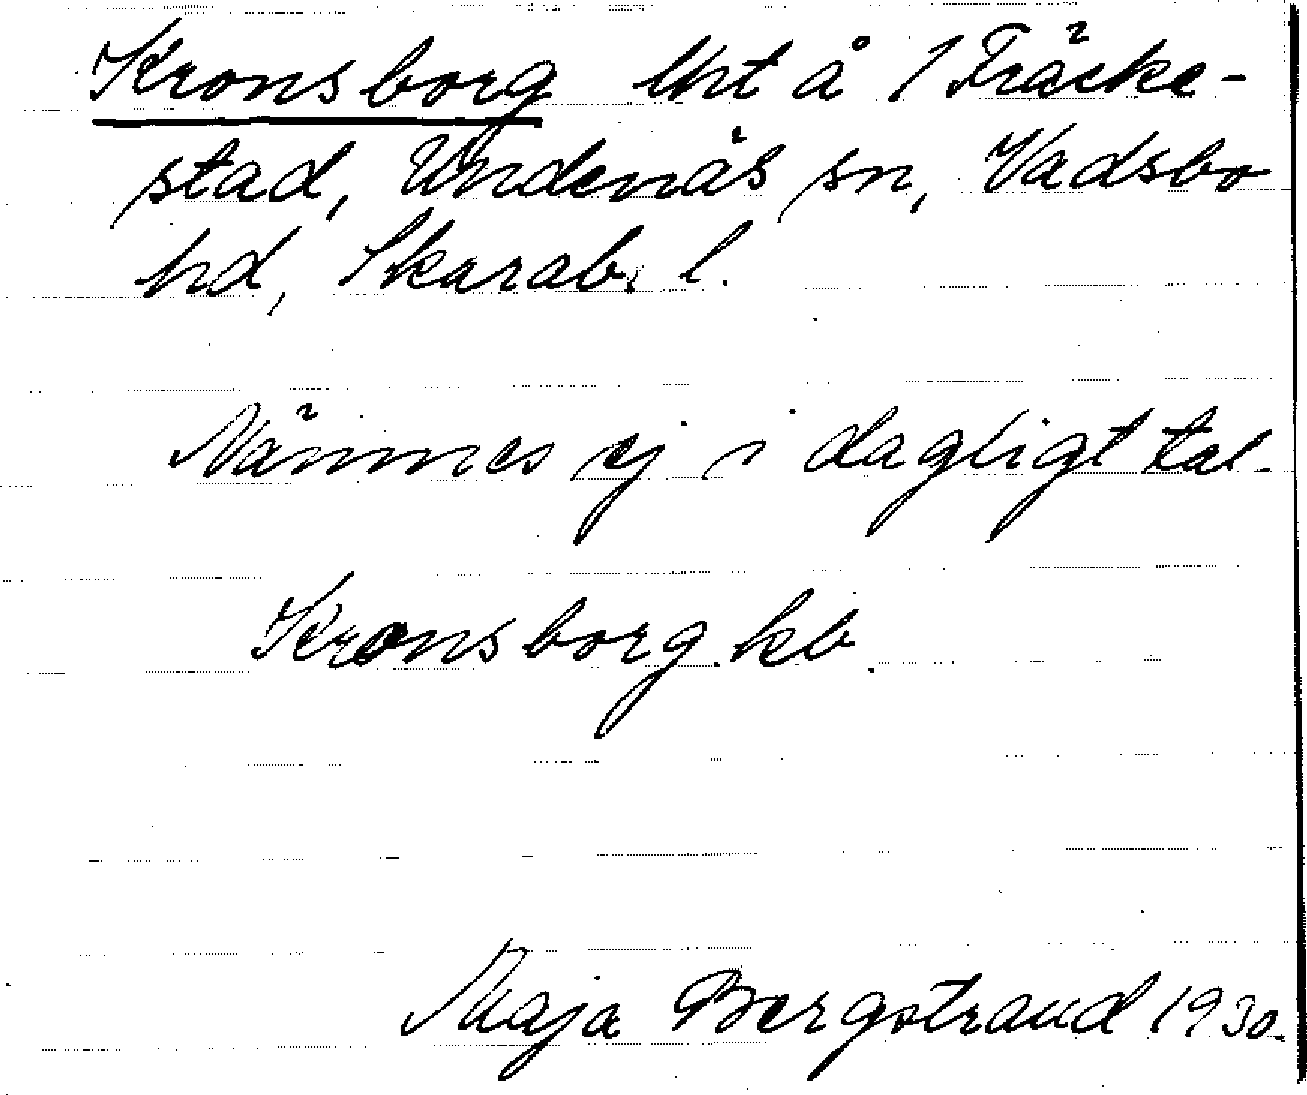 Kronsborg lht å 1 Fräcke-
stad, Undenäs sn, Vadsbo
hd, Skarab. l.
Nämnes ej i dagligt tal.
Kronsborg kb.
Maja Bergstrand 1930.